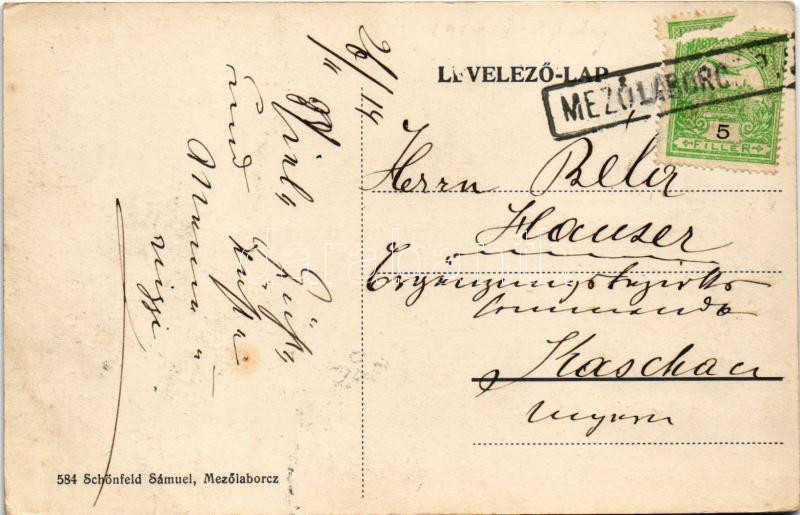 LEVELEZŐ-LAP
MEZŐLABORC
5
FILLER
Herrn Bela
Hauser
Ergänzungsbezirks
commando
Kaschau
Ungarn
26/II 14
Viele Grüße
und Küsse
Mama u
584 Schönfeld Sámuel, Mezőlaborcz
darabanth